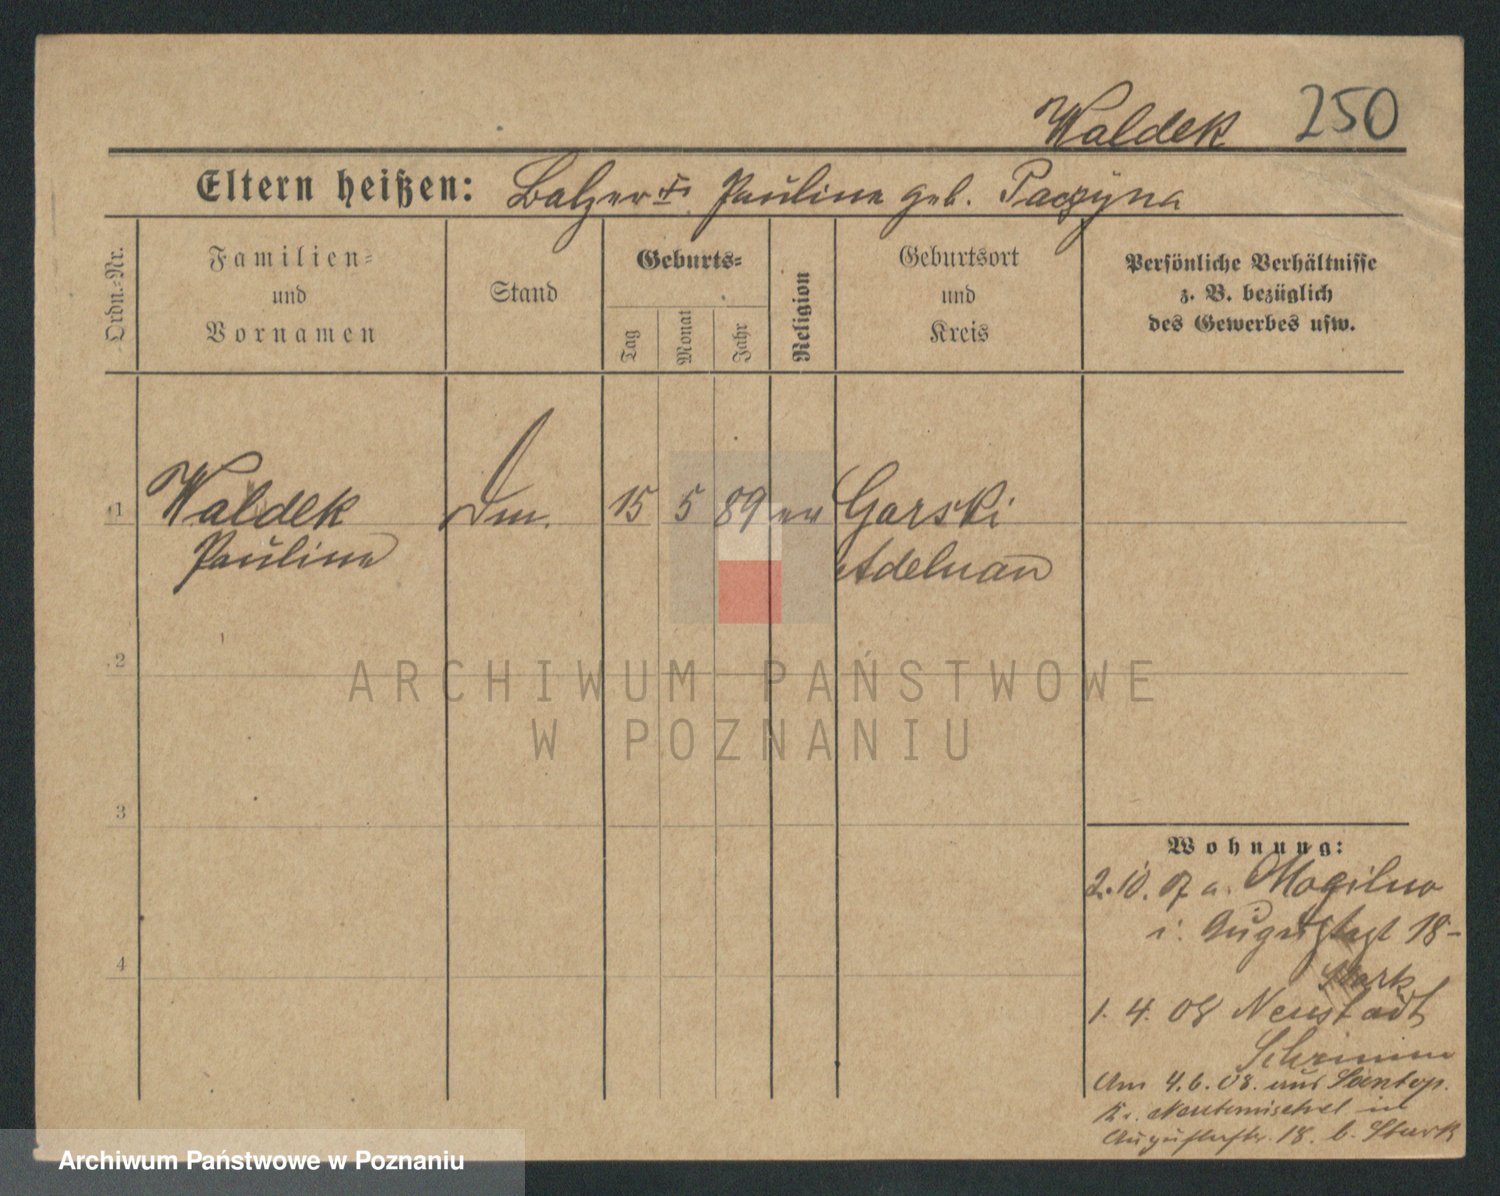 Waldek 250
Eltern heißen: Balzer Pauline geb.
Ordn.-Nr.
Familien-
und
Vornamen
Stand
Geburts-
Tag
Monat
Jahr
Religion
Geburtsort
und
Kreis
Persönliche Verhältnisse
z. B. bezüglich
des Gewerbes usw.
1 Waldek 15 5 89 Garski
Pauline Adelnau
2
3
4
ARCHIWUM PAŃSTWOWE
W POZNANIU
Wohnung:
2. 10. 07 a. Mogilno
i. 18-
Stark
1. 4. 08 Neustadt
Schrimm
Am 4. 6. 08. aus Santop.
Kr. Neutomischel in
18. b. Stark
Archiwum Państwowe w Poznaniu